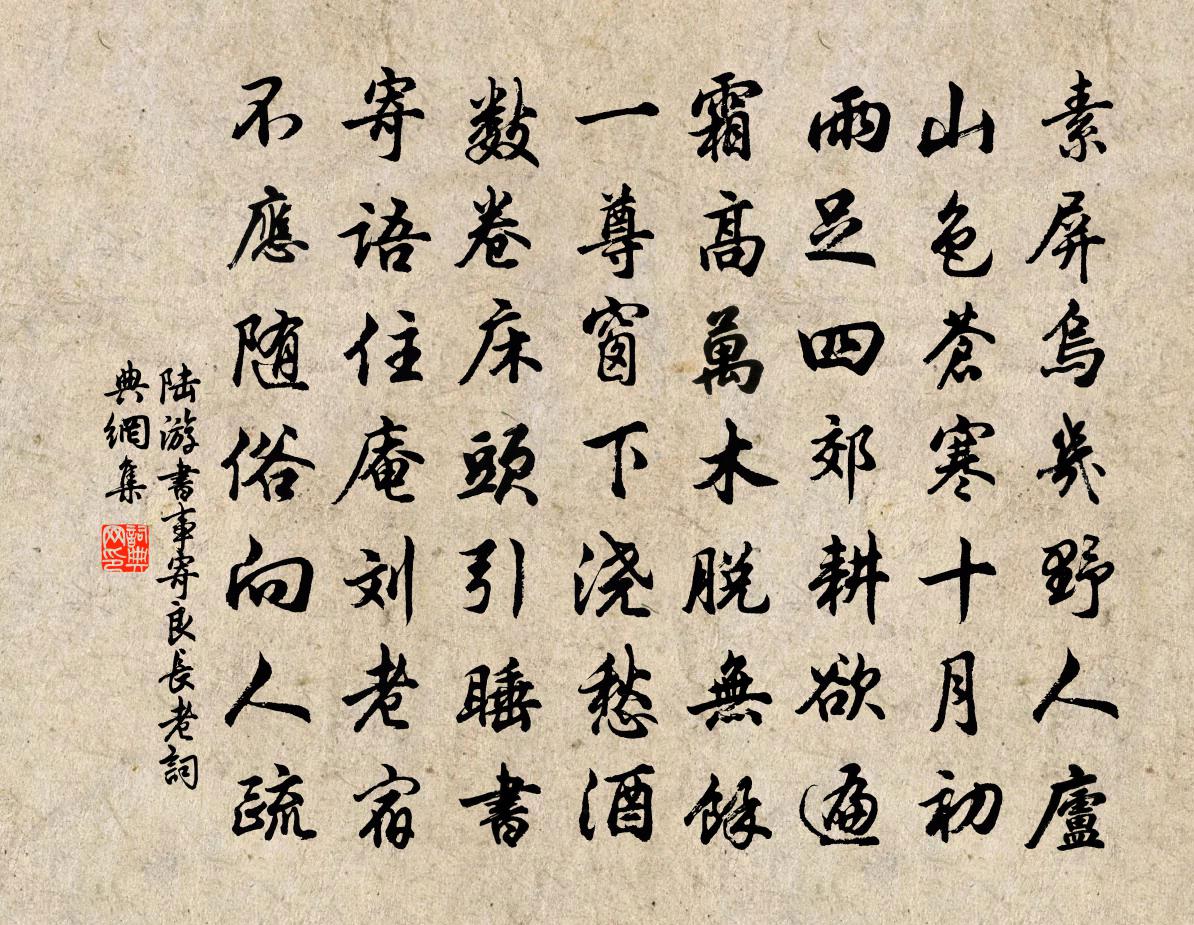 素屏烏几野人廬
山色蒼寒十月初
雨足四郊耕欲遍
霜高萬木脱無餘
一尊窗下浇愁酒
数卷床頭引睡書
寄語住庵刘老宿
不應随俗向人疏
陆游書事寄良長老詞
典網集
詞典网印